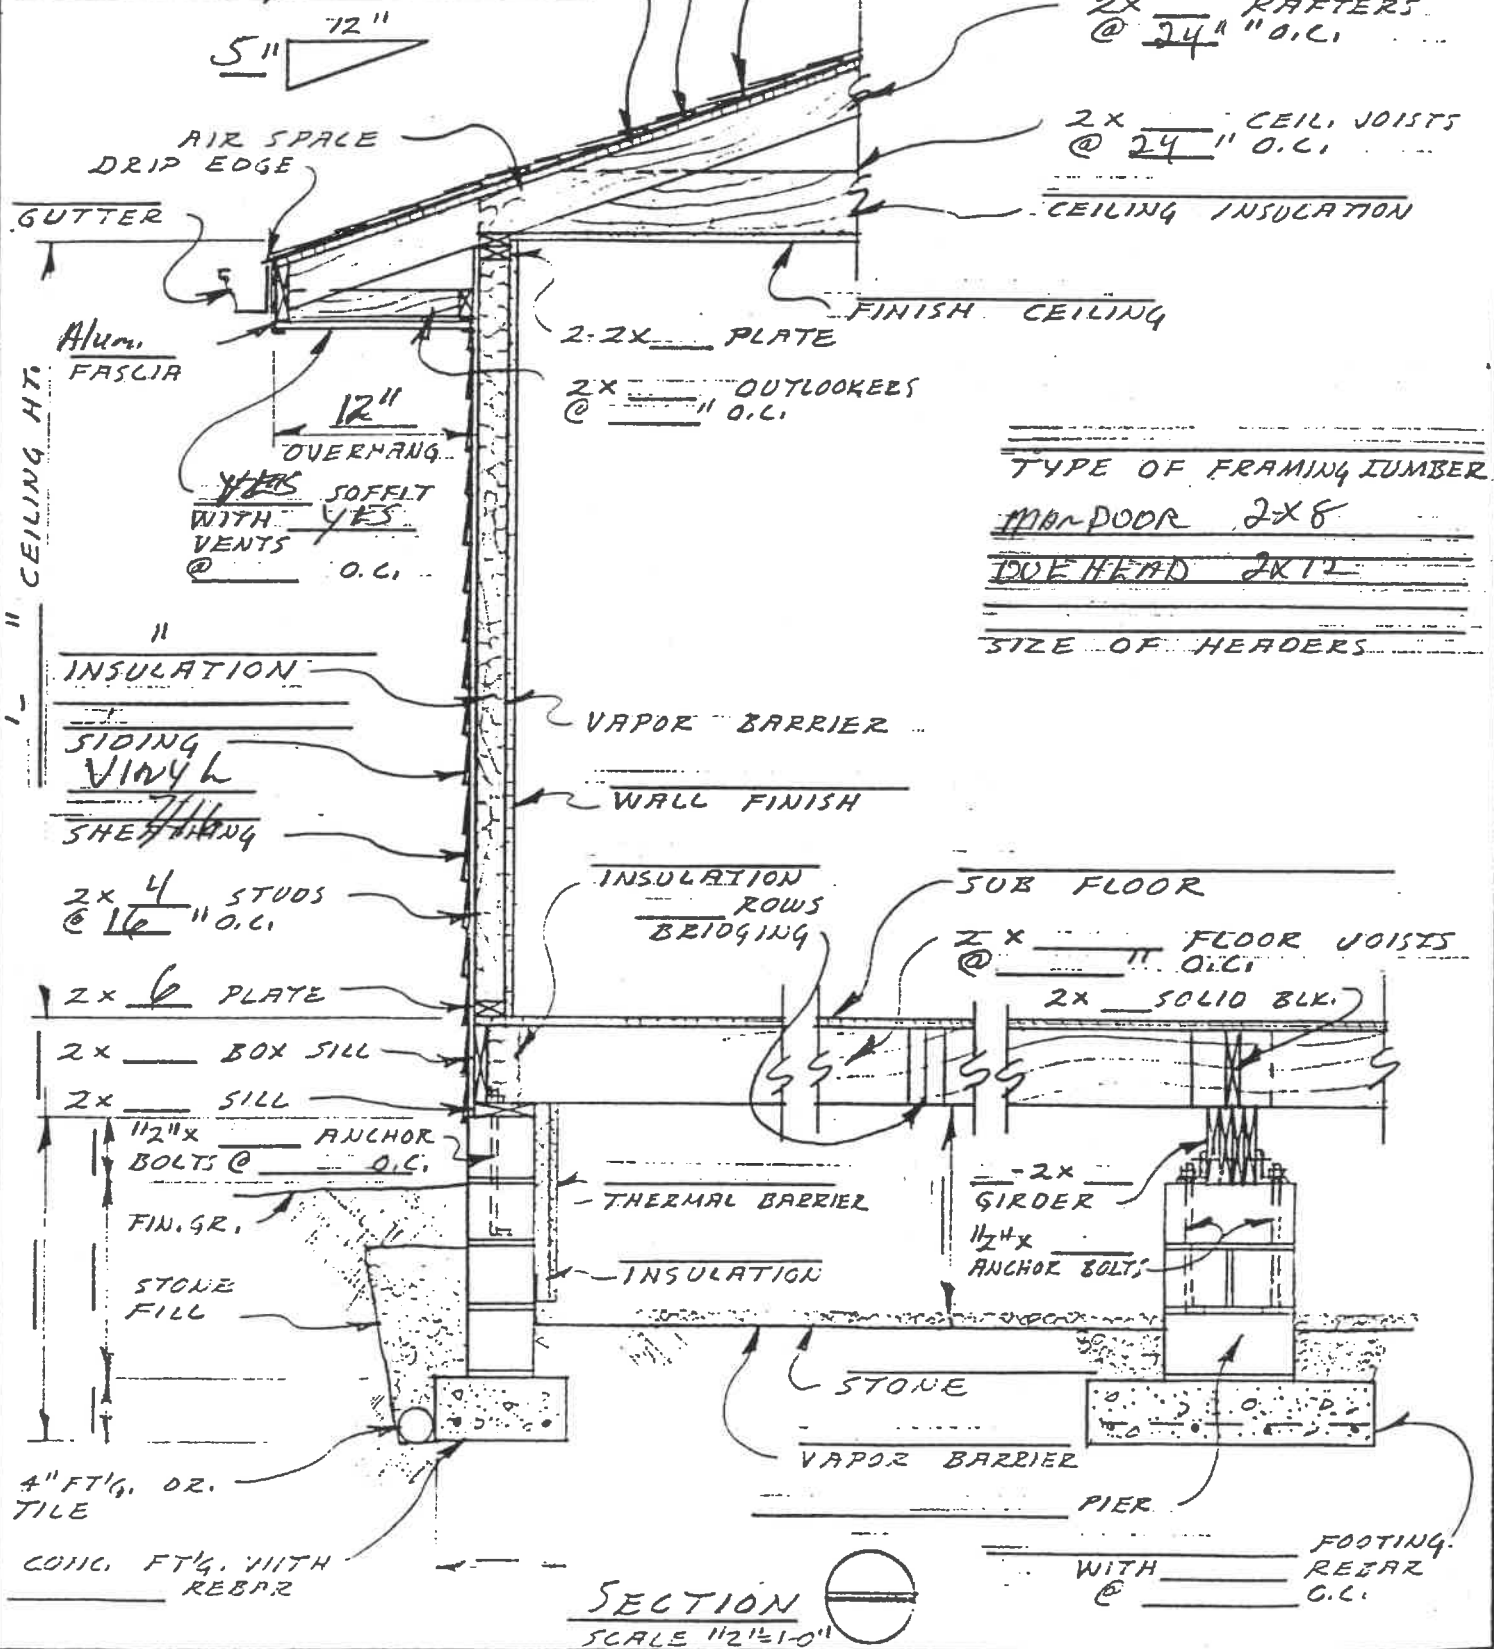 12"
5"
2x ___ RAFTERS
@ 24" "O.C.
AIR SPACE
DRIP EDGE
GUTTER
2x ___ CEIL. JOISTS
@ 24 " O.C.
CEILING INSULATION
FINISH CEILING
Alum.
FASCIA
2-2x ___ PLATE
2x ___ OUTLOOKERS
@ ___ " O.C.
12"
OVERHANG
YES SOFFIT
WITH YES
VENTS
@ ___ O.C.
'- " CEILING HT.
TYPE OF FRAMING LUMBER
MAN DOOR 2x8
OVEHEAD 2x12
SIZE OF HEADERS
"
INSULATION
SIDING
VINYL
7/16
SHEATHING
VAPOR BARRIER
WALL FINISH
2x 4 STUDS
@ 16 "O.C.
INSULATION
___ ROWS
BRIDGING
SUB FLOOR
2x ___ FLOOR JOISTS
@ ___ " O.C.
2x 6 PLATE
2x ___ SOLID BLK.
2x ___ BOX SILL
2x ___ SILL
1/2"x ___ ANCHOR
BOLTS @ ___ O.C.
FIN. GR.
THERMAL BARRIER
_-2x _
GIRDER
1/2"x ___
ANCHOR BOLTS
INSULATION
STONE
FILL
STONE
VAPOR BARRIER
4" FT'G. DR.
TILE
PIER
CONC. FT'G. WITH
___ REBAR
FOOTING
WITH ___ REBAR
@ ___ O.C.
SECTION
SCALE 1/2"=1'-0"